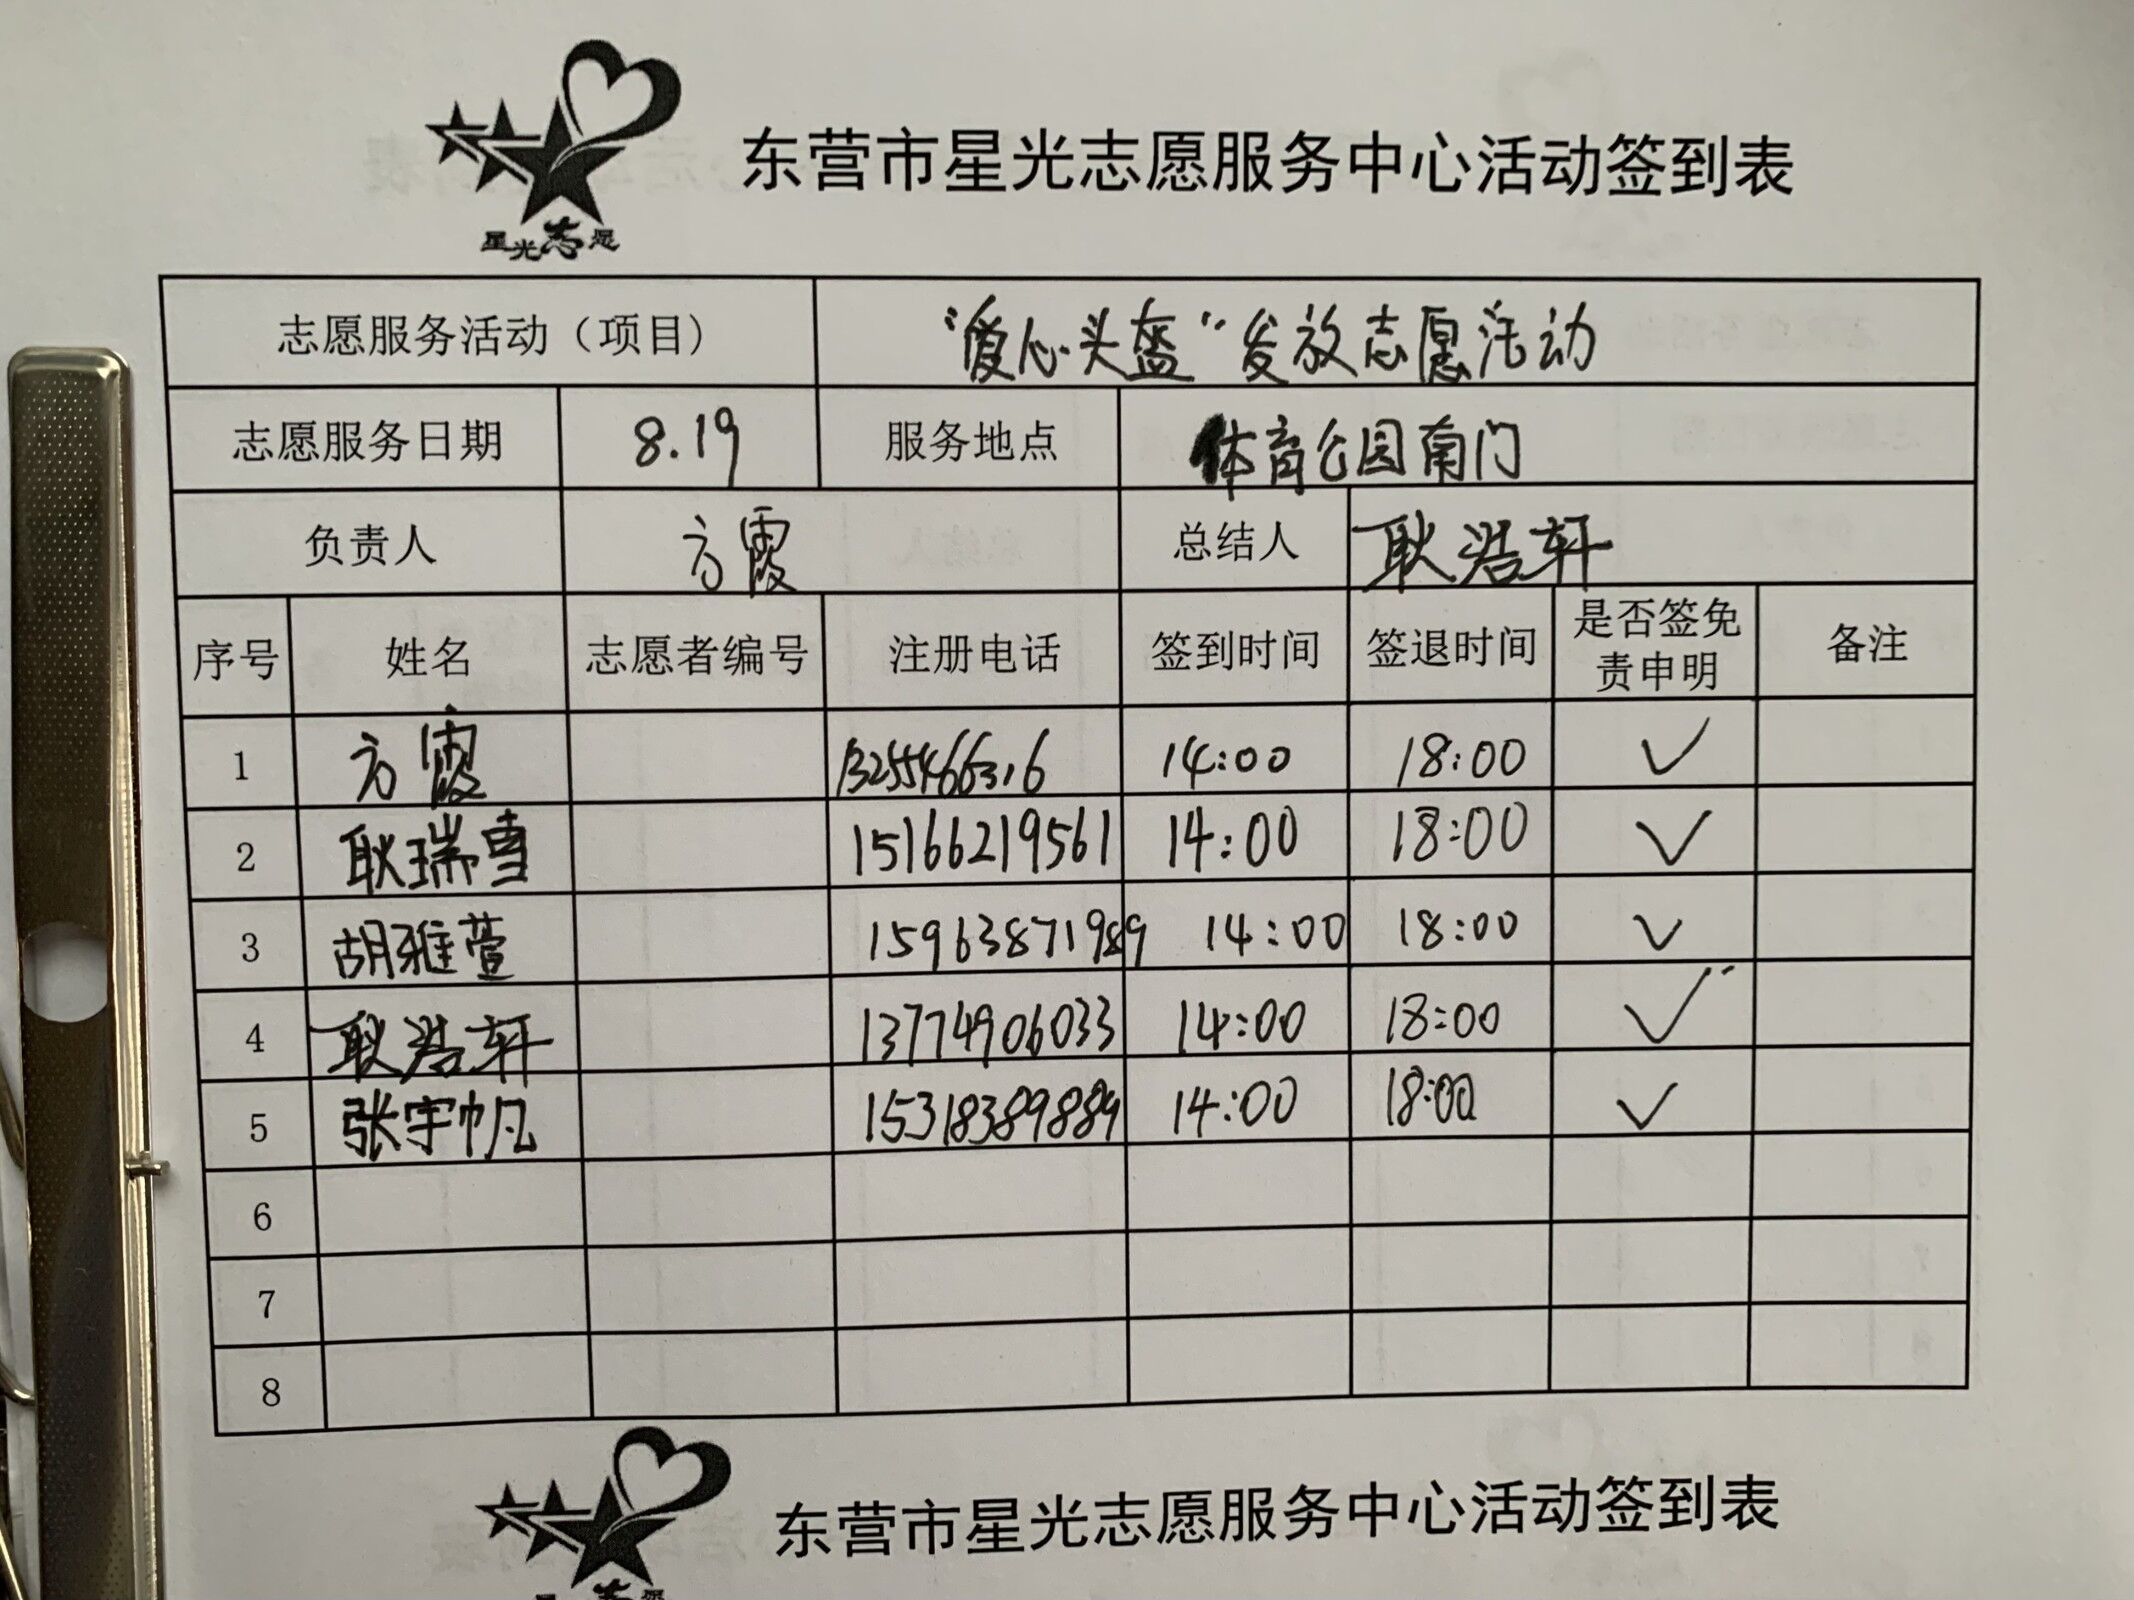 东营市星光志愿服务中心活动签到表
星光志愿
志愿服务活动（项目） “爱心头盔”发放志愿活动
志愿服务日期 8.19 服务地点 体育公园南门
负责人 方霞 总结人 耿浩轩
序号 姓名 志愿者编号 注册电话 签到时间 签退时间 是否签免责申明 备注
1 方霞 13255466316 14:00 18:00 ✓
2 耿瑞雪 15166219561 14:00 18:00 ✓
3 胡雅萱 15963871989 14:00 18:00 ✓
4 耿浩轩 13774906033 14:00 18:00 ✓
5 张宇帆 15318389889 14:00 18:00 ✓
6
7
8
东营市星光志愿服务中心活动签到表